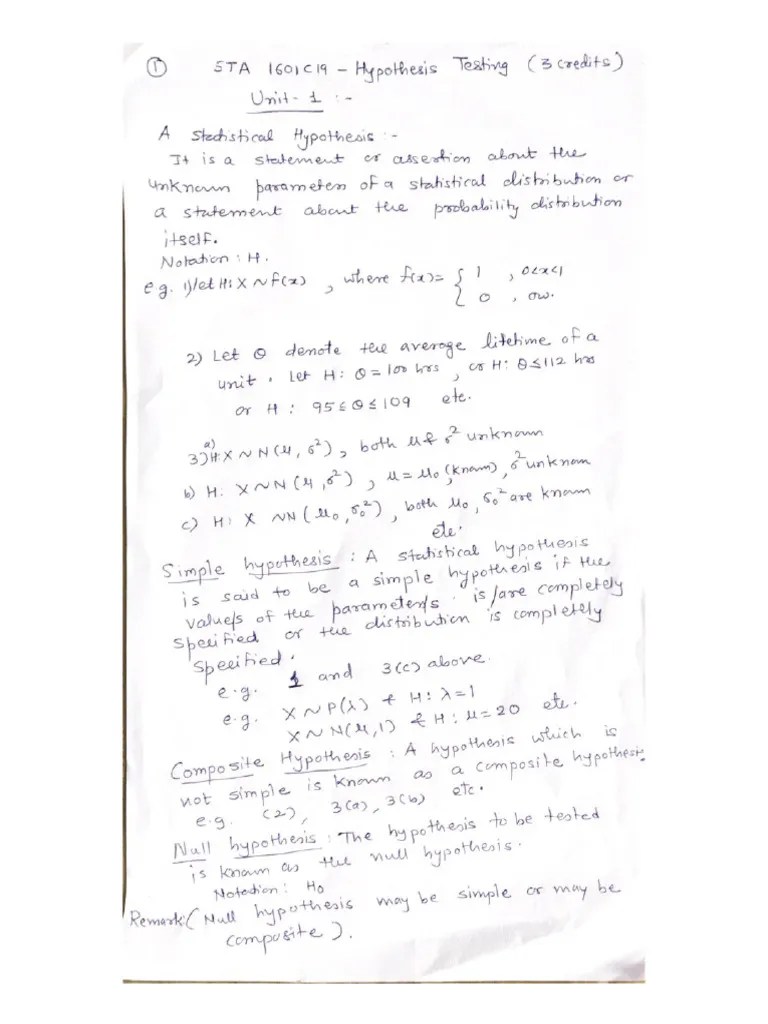 ① STA 1601C19 – Hypothesis Testing (3 credits)
Unit-1 :-
A Statistical Hypothesis :-
It is a statement or assertion about the
unknown parameters of a statistical distribution or
a statement about the probability distribution
itself.
Notation : H.
e.g. 1) let H: X ~ f(x) , where f(x) = { 1 , 0<x<1
0 , ow.
2) Let θ denote the average lifetime of a
unit. Let H: θ = 100 hrs , or H: θ ≤ 112 hrs
or H : 95 ≤ θ ≤ 109 etc.
3) a) H: X ~ N(μ, σ²) , both μ & σ² unknown
b) H: X ~ N(μ, σ²) , μ = μ₀ (known), σ² unknown
c) H: X ~ N(μ₀, σ₀²) , both μ₀, σ₀² are known
etc.
Simple hypothesis : A statistical hypothesis
is said to be a simple hypothesis if the
value/s of the parameter/s is/are completely
specified or the distribution is completely
specified.
e.g. 1 and 3(c) above.
e.g. X ~ P(λ) & H: λ=1
X ~ N(μ,1) & H: μ=20 etc.
Composite Hypothesis : A hypothesis which is
not simple is known as a composite hypothesis
e.g. (2), 3(a), 3(b) etc.
Null hypothesis : The hypothesis to be tested
is known as the null hypothesis.
Notation : H₀
Remark: (Null hypothesis may be simple or may be
composite).